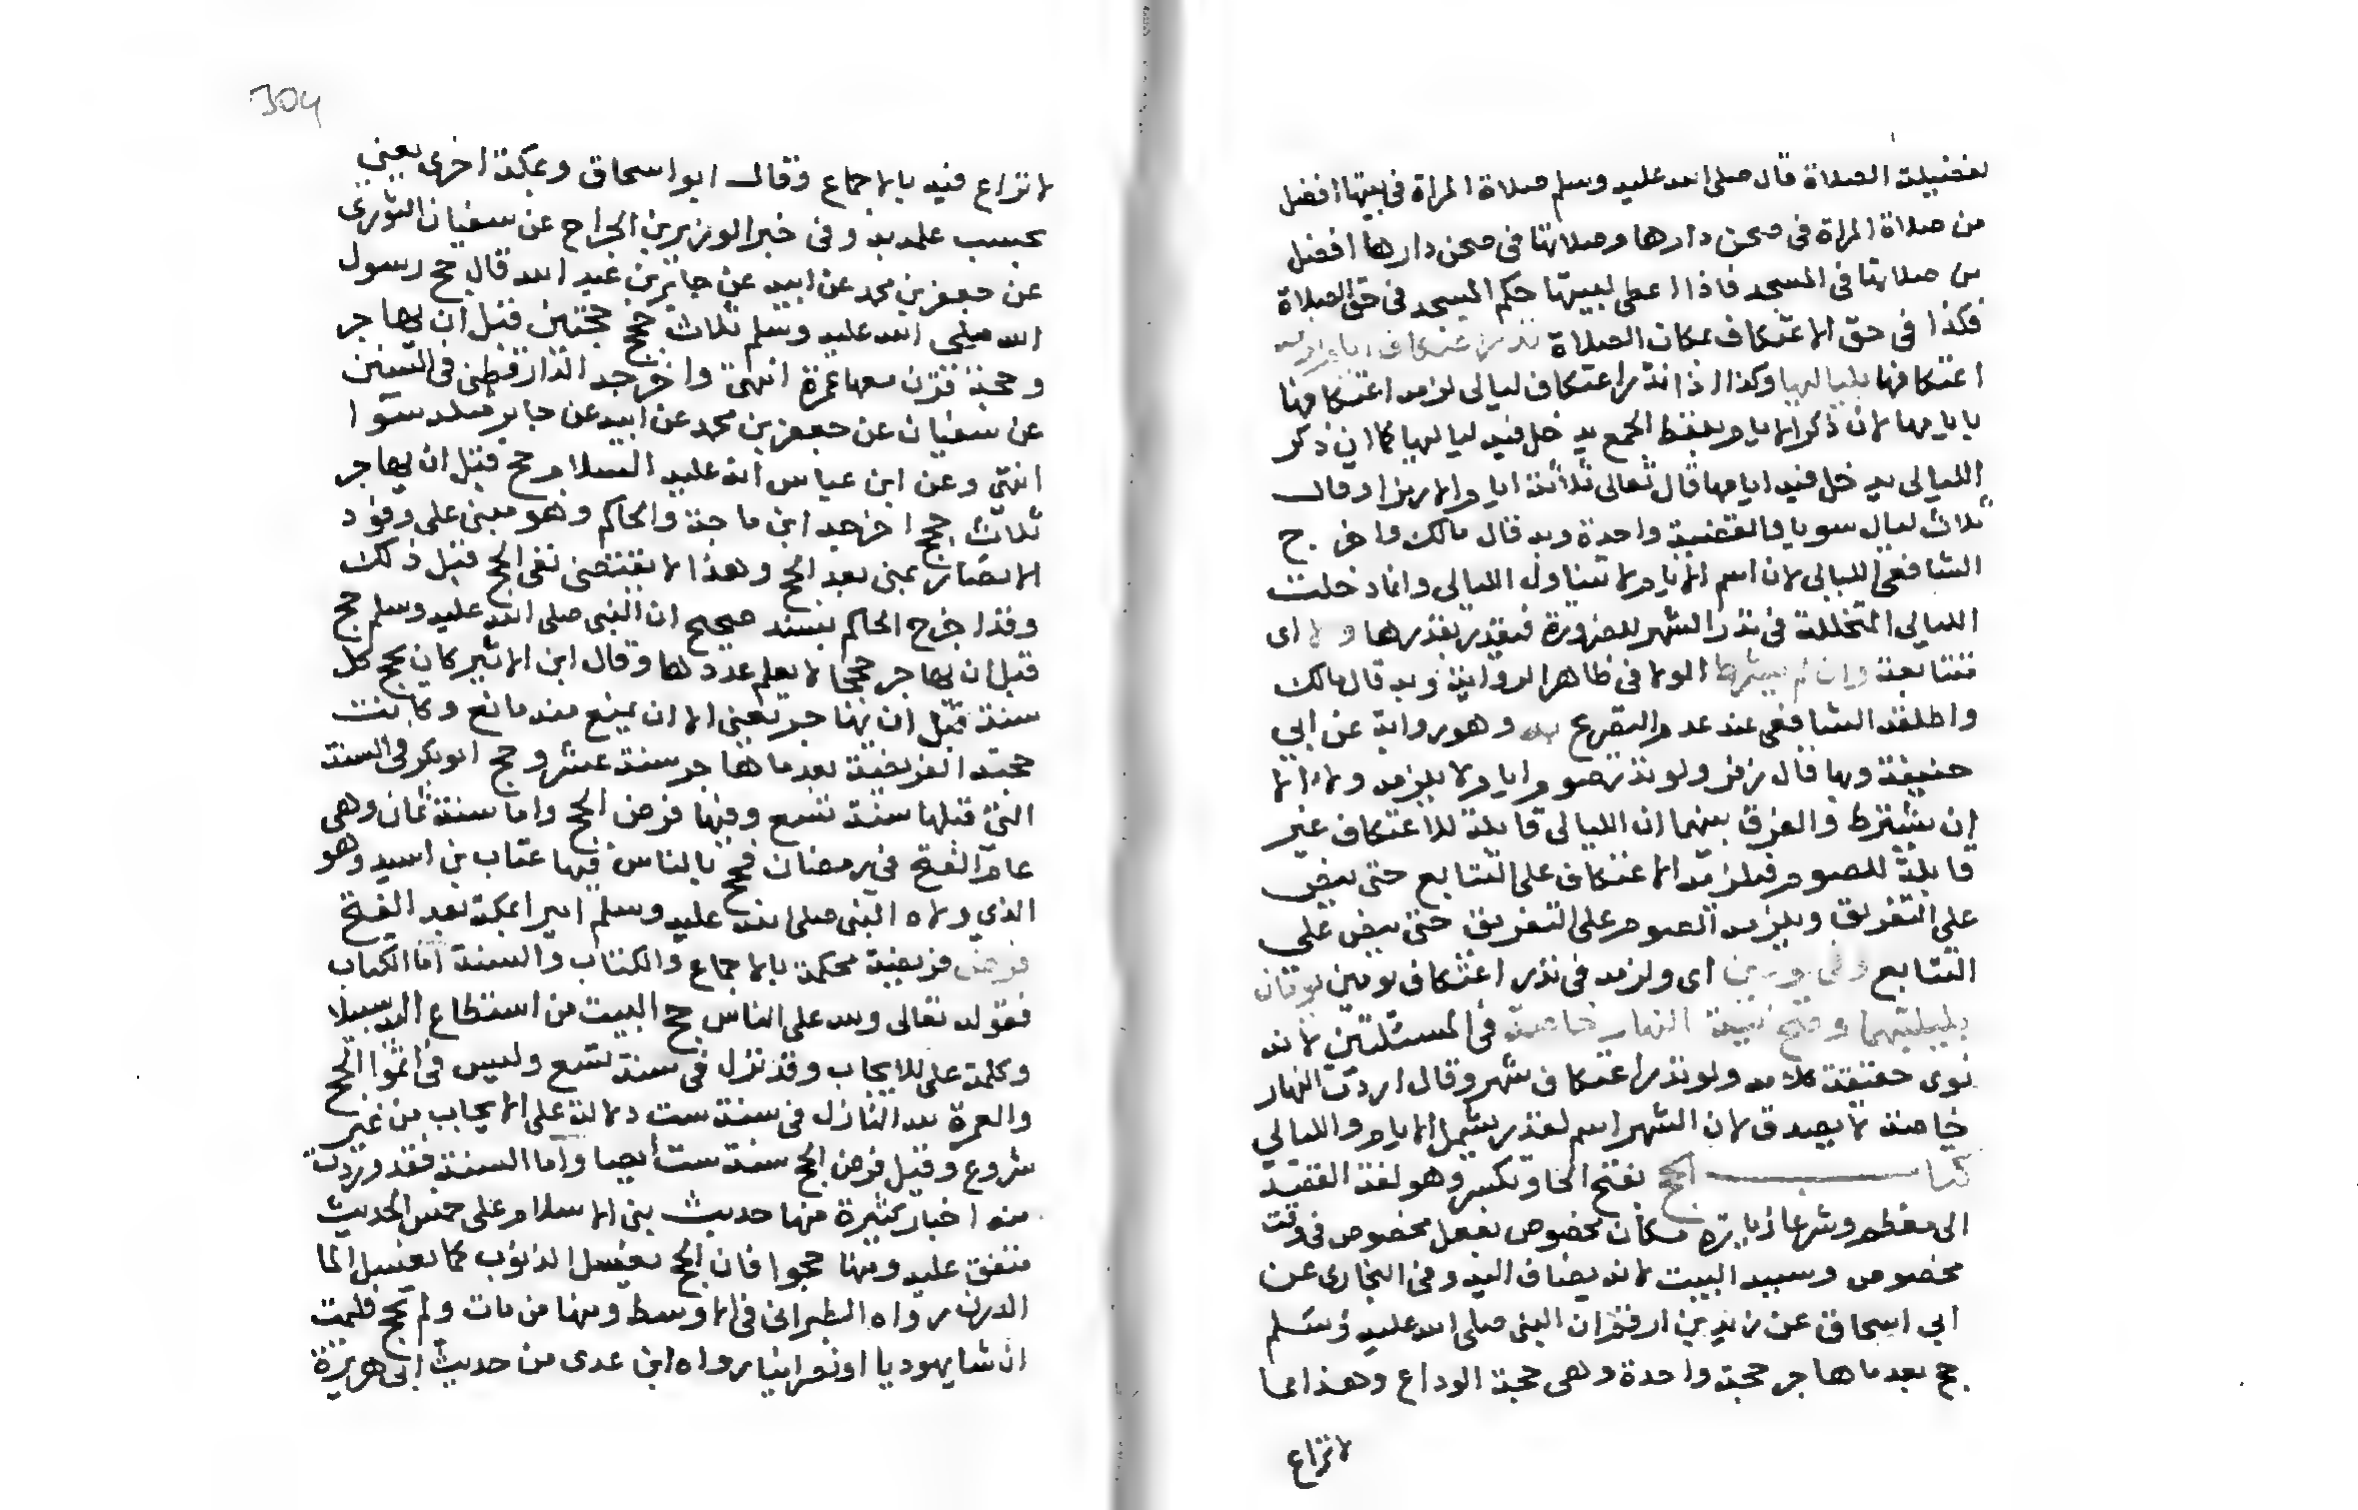 لفضيلة الصلاة قال صلى الله عليه وسلم صلاة المراة في بيتها افضل
من صلاة المراة في صحن دارها وصلاتها في صحن دارها افضل
من صلاتها في المسجد فاذا اعطى لبيتها حكم المسجد في حق الصلاة
فكذا في حق الاعتكاف بمكان الصلاة نذر اعتكاف ايام لزمه
اعتكافها بلياليها وكذا اذا نذر اعتكاف ليالى لزمه اعتكافها
بايامها لان ذكر الايام بلفظ الجمع يدخل فيه لياليها كما ان ذكر
الليالى يدخل فيه ايامها قال تعالى ثلاثة ايام الا رمزا وقال
ثلاث ليال سويا والقضية واحدة وبه قال مالك واخرج
الشافعي الليالى لان اسم الايام لا تتناول الليالى وانما دخلت
الليالى المتخللة في نذر الشهر للضرورة فيقدر بقدرها ولا اى
متتابعة وان لم يشترط الولا في ظاهر الرواية وبه قال مالك
واطلقه الشافعى عند عدم التصريح به وهو رواية عن ابي
حنيفة وبها قال زفر ولو نذر صوم ايام لا يلزمه ولاء الا
ان يشترط والفرق بينهما ان الليالى قابلة للاعتكاف غير
قابلة للصوم فيلزمه الاعتكاف على التتابع حتى ينص
على التفريق ويلزمه الصوم على التفريق حتى ينص على
التتابع وفى يومين اى ولزمه في نذر اعتكاف يومين يومان
بليلتيهما وصح نية النهار خاصة في المسئلتين لانه
نوى حقيقة كلامه ولو نذر اعتكاف شهر وقال اردت النهار
خاصة لا يصدق لان الشهر اسم لعدد يشمل الايام والليالي
كتاب الحج بفتح الحا وتكسر وهو لغة القصد
الى معظم وشرعا زيارة مكان مخصوص بفعل مخصوص في وقت
مخصوص وسببه البيت لانه يضاف اليه وفى البخارى عن
ابي اسحاق عن زيد بن ارقم ان النبي صلى الله عليه وسلم
حج بعد ما هاجر حجة واحدة وهى حجة الوداع وهذا مما
لا نزاع
304
لا نزاع فيه بالاجماع وقال ابو اسحاق وبمكة اخرى يعني
بحسب علمه به وفى خبر الوزير بن الجراح عن سفيان الثورى
عن جعفر بن محمد عن ابيه عن جابر بن عبد الله قال حج رسول
الله صلى الله عليه وسلم ثلاث حجج حجتين قبل ان يهاجر
وحجة قرن معها عمرة انتهى واخرجه الدارقطنى في السنن
عن سفيان عن جعفر بن محمد عن ابيه عن جابر مثله سوا
انتهى وعن ابن عباس انه عليه السلام حج قبل ان يهاجر
ثلاث حجج اخرجه ابن ماجة والحاكم وهو مبنى على وفود
الانصار بمنى بعد الحج وهذا لا يقتضى نفى الحج قبل ذلك
وقد اخرج الحاكم بسند صحيح ان النبى صلى الله عليه وسلم حج
قبل ان يهاجر حججا لا يعلم عددها وقال ابن الاثير كان يحج كل
سنة قبل ان يهاجر يعنى الا ان يمنع منه مانع وكانت
حجته الفريضة بعد ما هاجر سنة عشر وحج ابو بكر في السنة
التى قبلها سنة تسع وفيها فرض الحج واما سنة ثمان وهى
عام الفتح فى رمضان فحج بالناس فيها عتاب بن اسيد وهو
الذي ولاه النبي صلى الله عليه وسلم اميرا بمكة بعد الفتح
فرض فريضة محكمة بالاجماع والكتاب والسنة اما الكتاب
فقوله تعالى ولله على الناس حج البيت من استطاع اليه سبيلا
وكلمة على للايجاب وقد نزل في سنة تسع وليس في اتموا الحج
والعمرة لله النازل في سنة ست دلالة على الايجاب من غير
شروع وقيل فرض الحج سنة ست ايضا واما السنة فقد وردت
منه اخبار كثيرة منها حديث بنى الاسلام على خمس الحديث
متفق عليه ومنها حجوا فان الحج يغسل الذنوب كما يغسل الما
الدرن رواه الطبرانى في الاوسط ومنها من مات ولم يحج فليمت
ان شا يهوديا او نصرانيا رواه ابن عدى من حديث ابى هريرة